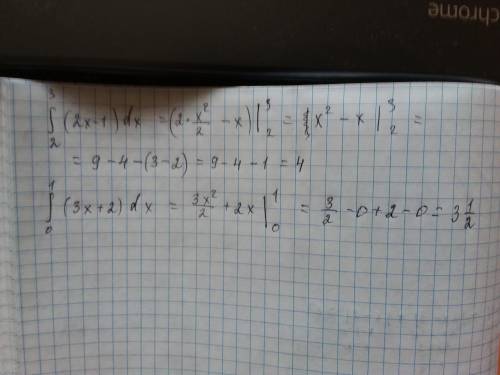 chrome
∫₂³ (2x-1) dx = (2·x²/2 - x) |₂³ = x² - x |₂³ =
= 9-4-(3-2) = 9-4-1 = 4
∫₀¹ (3x+2) dx = 3x²/2 + 2x |₀¹ = 3/2 - 0 + 2 - 0 = 3 1/2